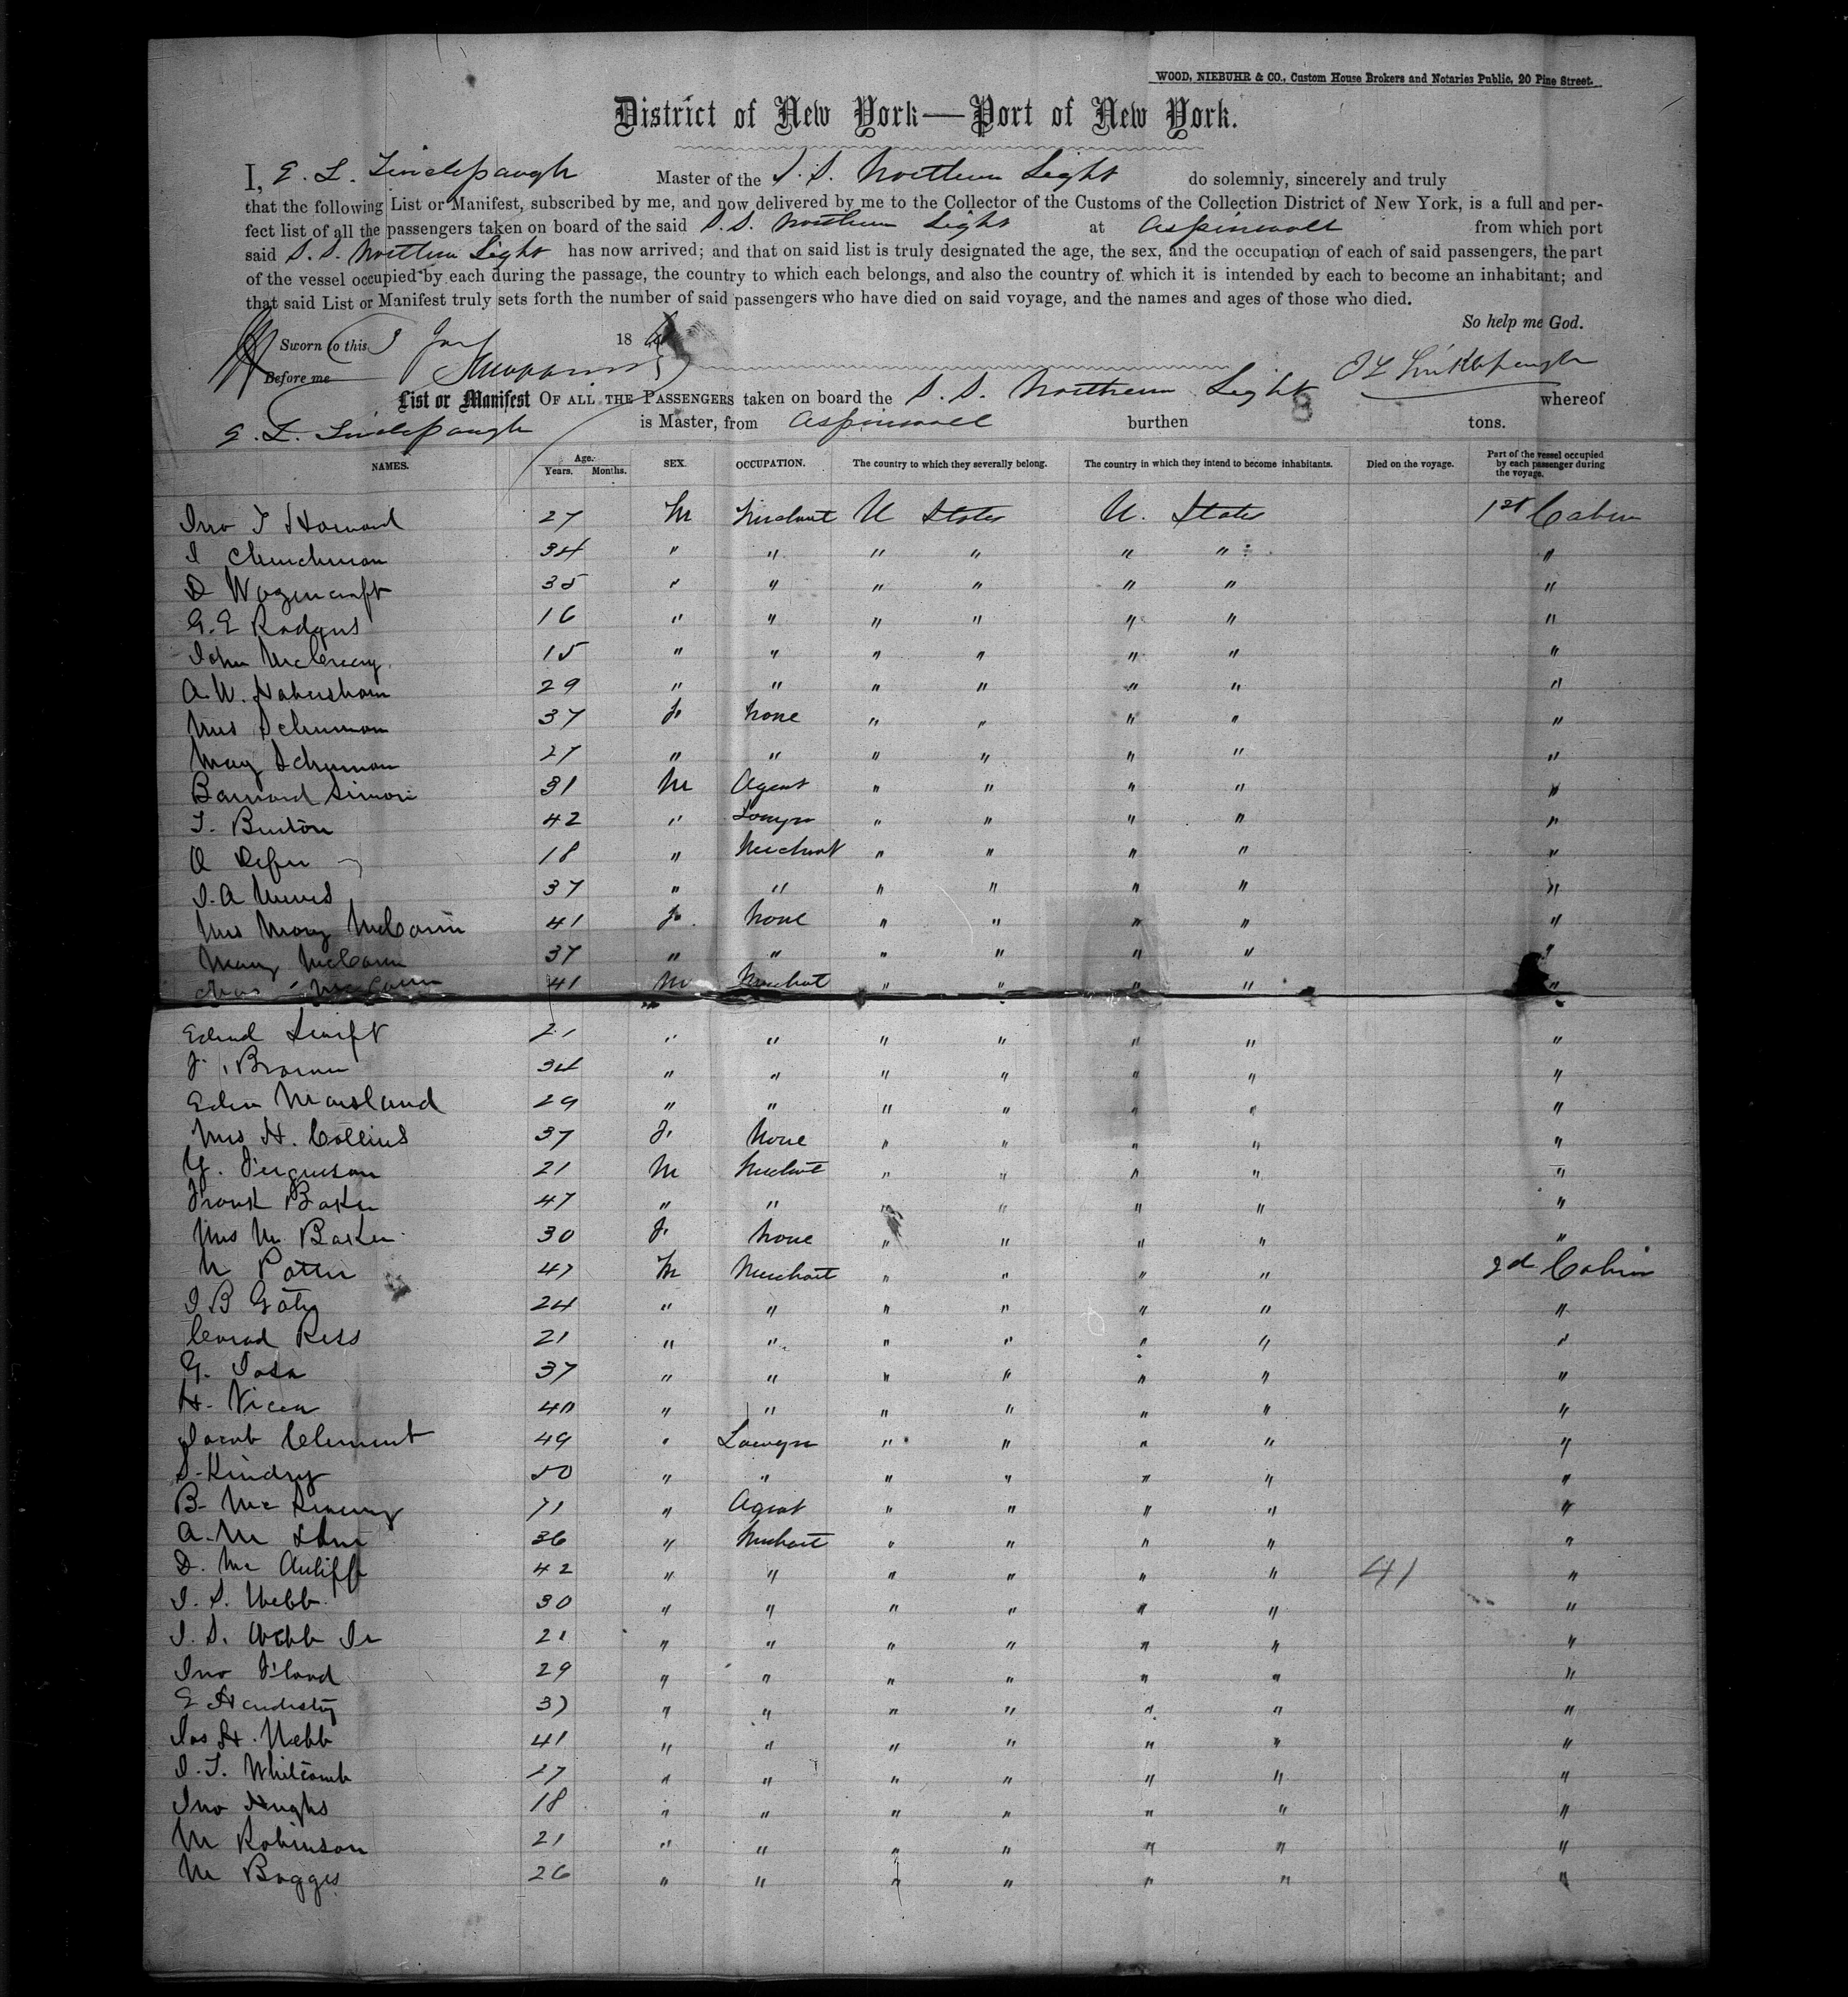 WOOD, NIEBUHR & CO., Custom House Brokers and Notaries Public, 20 Pine Street.
District of New York—Port of New York.
I, E. L. Tincklepaugh Master of the S. S. Northern Light do solemnly, sincerely and truly
that the following List or Manifest, subscribed by me, and now delivered by me to the Collector of the Customs of the Collection District of New York, is a full and per-
fect list of all the passengers taken on board of the said S. S. Northern Light at Aspinwall from which port
said S. S. Northern Light has now arrived; and that on said list is truly designated the age, the sex, and the occupation of each of said passengers, the part
of the vessel occupied by each during the passage, the country to which each belongs, and also the country of which it is intended by each to become an inhabitant; and
that said List or Manifest truly sets forth the number of said passengers who have died on said voyage, and the names and ages of those who died.
So help me God.
Sworn to this 3 Jan 186
Before me
E L Tincklepaugh
List or Manifest OF ALL THE PASSENGERS taken on board the S. S. Northern Light whereof
E. L. Tincklepaugh is Master, from Aspinwall burthen 8 tons.
NAMES. Age. Years. Months. SEX. OCCUPATION. The country to which they severally belong. The country in which they intend to become inhabitants. Died on the voyage. Part of the vessel occupied by each passenger during the voyage.
Jno T Howard 27 M Merchant U States U. States 1st Cabin
I Churchman 34 " " " " " " "
D Wozencraft 35 " " " " " " "
G. E Rodgers 16 " " " " " " "
John McCreery 15 " " " " " " "
A. W. Habersham 29 " " " " " " "
Mrs Schuman 37 F None " " " " "
May Schuman 27 " " " " " " "
Barnard Simon 31 M Agent " " " " "
T. Burton 42 " Lawyer " " " " "
A 18 " Merchant " " " " "
J. A 37 " " " " " " "
Mrs Mary McCann 41 F. None " " " " "
Mary McCann 37 " " " " " " "
Chas McCann 41 M Merchant " " " " "
Edwd Swift 21 " " " " " " "
J. Brown 34 " " " " " " "
Edwn Marsland 29 " " " " " " "
Mrs H. Collins 37 F None " " " " "
Y. Ferguson 21 M Merchant " " " " "
Frank Baker 47 " " " " " " "
Mrs M. Baker 30 F None " " " " "
M Potter 47 M Merchant " " " " 2d Cabin
J B Gaty 24 " " " " " " "
Conrad Ress 21 " " " " " " "
G. 37 " " " " " " "
H. 40 " " " " " " "
Jacob Clement 49 " Lawyer " " " " "
S. Kindry 50 " " " " " " "
B. Mc 71 " Agent " " " " "
A. M 36 " Merchant " " " " "
D. Mc Auliff 42 " " " " " " 41 "
J. S. Webb 30 " " " " " " "
J. S. Webb Jr 21 " " " " " " "
Jno Flood 29 " " " " " " "
E Hardesty 37 " " " " " " "
Jas H. Webb 41 " " " " " " "
J. T. Whitcomb 27 " " " " " " "
Jno Hughs 18 " " " " " " "
M Robinson 21 " " " " " " "
M Boggs 26 " " " " " " "